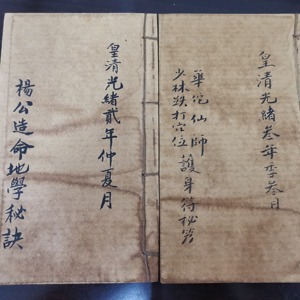 皇清光緒叁年季叁月
華佗仙師
少林跌打穴位護身符秘笈
皇清光緒貳年仲夏月
楊公造命地學秘訣